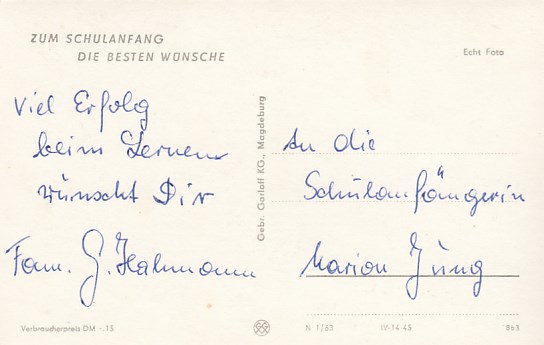 ZUM SCHULANFANG
DIE BESTEN WÜNSCHE
Viel Erfolg
beim Lernen
wünscht Dir
Fam. G. Hahmann
Gebr. Garloff KG., Magdeburg
Echt Foto
An die
Schulanfängerin
Marion Jung
Verbraucherpreis DM -.15
N 1/63 IV-14-45 863